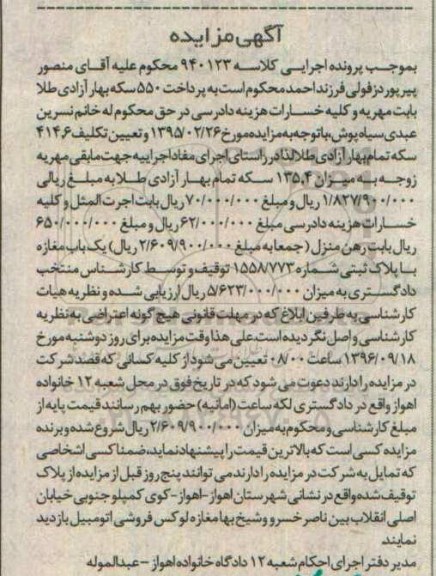 آگهی مزایده
بموجب پرونده اجرایی کلاسه ۹۴۰۱۲۳ محکوم علیه آقای منصور
پیرپور دزفولی فرزند احمد محکوم است به پرداخت ۵۵۰ سکه بهار آزادی طلا
بابت مهریه و کلیه خسارات هزینه دادرسی در حق محکوم له خانم نسرین
عبدی سیاه پوش، باتوجه به مزایده مورخ ۱۳۹۵/۰۲/۲۶ و تعیین تکلیف ۴۱۴٫۶
سکه تمام بهار آزادی طلا لذا در راستای اجرای مفاد اجراییه جهت مابقی مهریه
زوجه به میزان ۱۳۵٫۴ سکه تمام بهار آزادی طلا به مبلغ ریالی
۱/۸۲۷/۹۰۰/۰۰۰ ریال و مبلغ ۷۰/۰۰۰/۰۰۰ ریال بابت اجرت المثل و کلیه
خسارات هزینه دادرسی مبلغ ۶۲/۰۰۰/۰۰۰ ریال و مبلغ ۶۵۰/۰۰۰/۰۰۰
ریال بابت رهن منزل (جمعا به مبلغ ۲/۶۰۹/۹۰۰/۰۰۰ ریال) یک باب مغازه
با پلاک ثبتی شماره ۱۵۵۸/۷۷۳ توقیف و توسط کارشناس منتخب
دادگستری به میزان ۵/۶۲۳/۰۰۰/۰۰۰ ریال ارزیابی شده و نظریه هیات
کارشناسی به طرفین ابلاغ که در مهلت قانونی هیچ گونه اعتراضی به نظریه
کارشناسی واصل نگردیده است علی هذا وقت مزایده برای روز دوشنبه مورخ
۱۳۹۶/۰۹/۱۸ ساعت ۰۸/۰۰ تعیین می شود از کلیه کسانی که قصد شرکت
در مزایده را دارند دعوت می شود که در تاریخ فوق در محل شعبه ۱۲ خانواده
اهواز واقع در دادگستری لکه ساعت (امانیه) حضور بهم رسانند قیمت پایه از
مبلغ کارشناسی و محکوم به میزان ۲/۶۰۹/۹۰۰/۰۰۰ ریال شروع شده و برنده
مزایده کسی است که بالاترین قیمت را پیشنهاد نماید، ضمنا کسی اشخاصی
که تمایل به شرکت در مزایده را دارند می توانند پنج روز قبل از مزایده از پلاک
توقیف شده واقع در نشانی شهرستان اهواز-اهواز-کوی کمپلو جنوبی خیابان
اصلی انقلاب بین ناصر خسرو و شیخ بها مغازه لوکس فروشی اتومبیل بازدید
نمایند
مدیر دفتر اجرای احکام شعبه ۱۲ دادگاه خانواده اهواز - عبدالموله